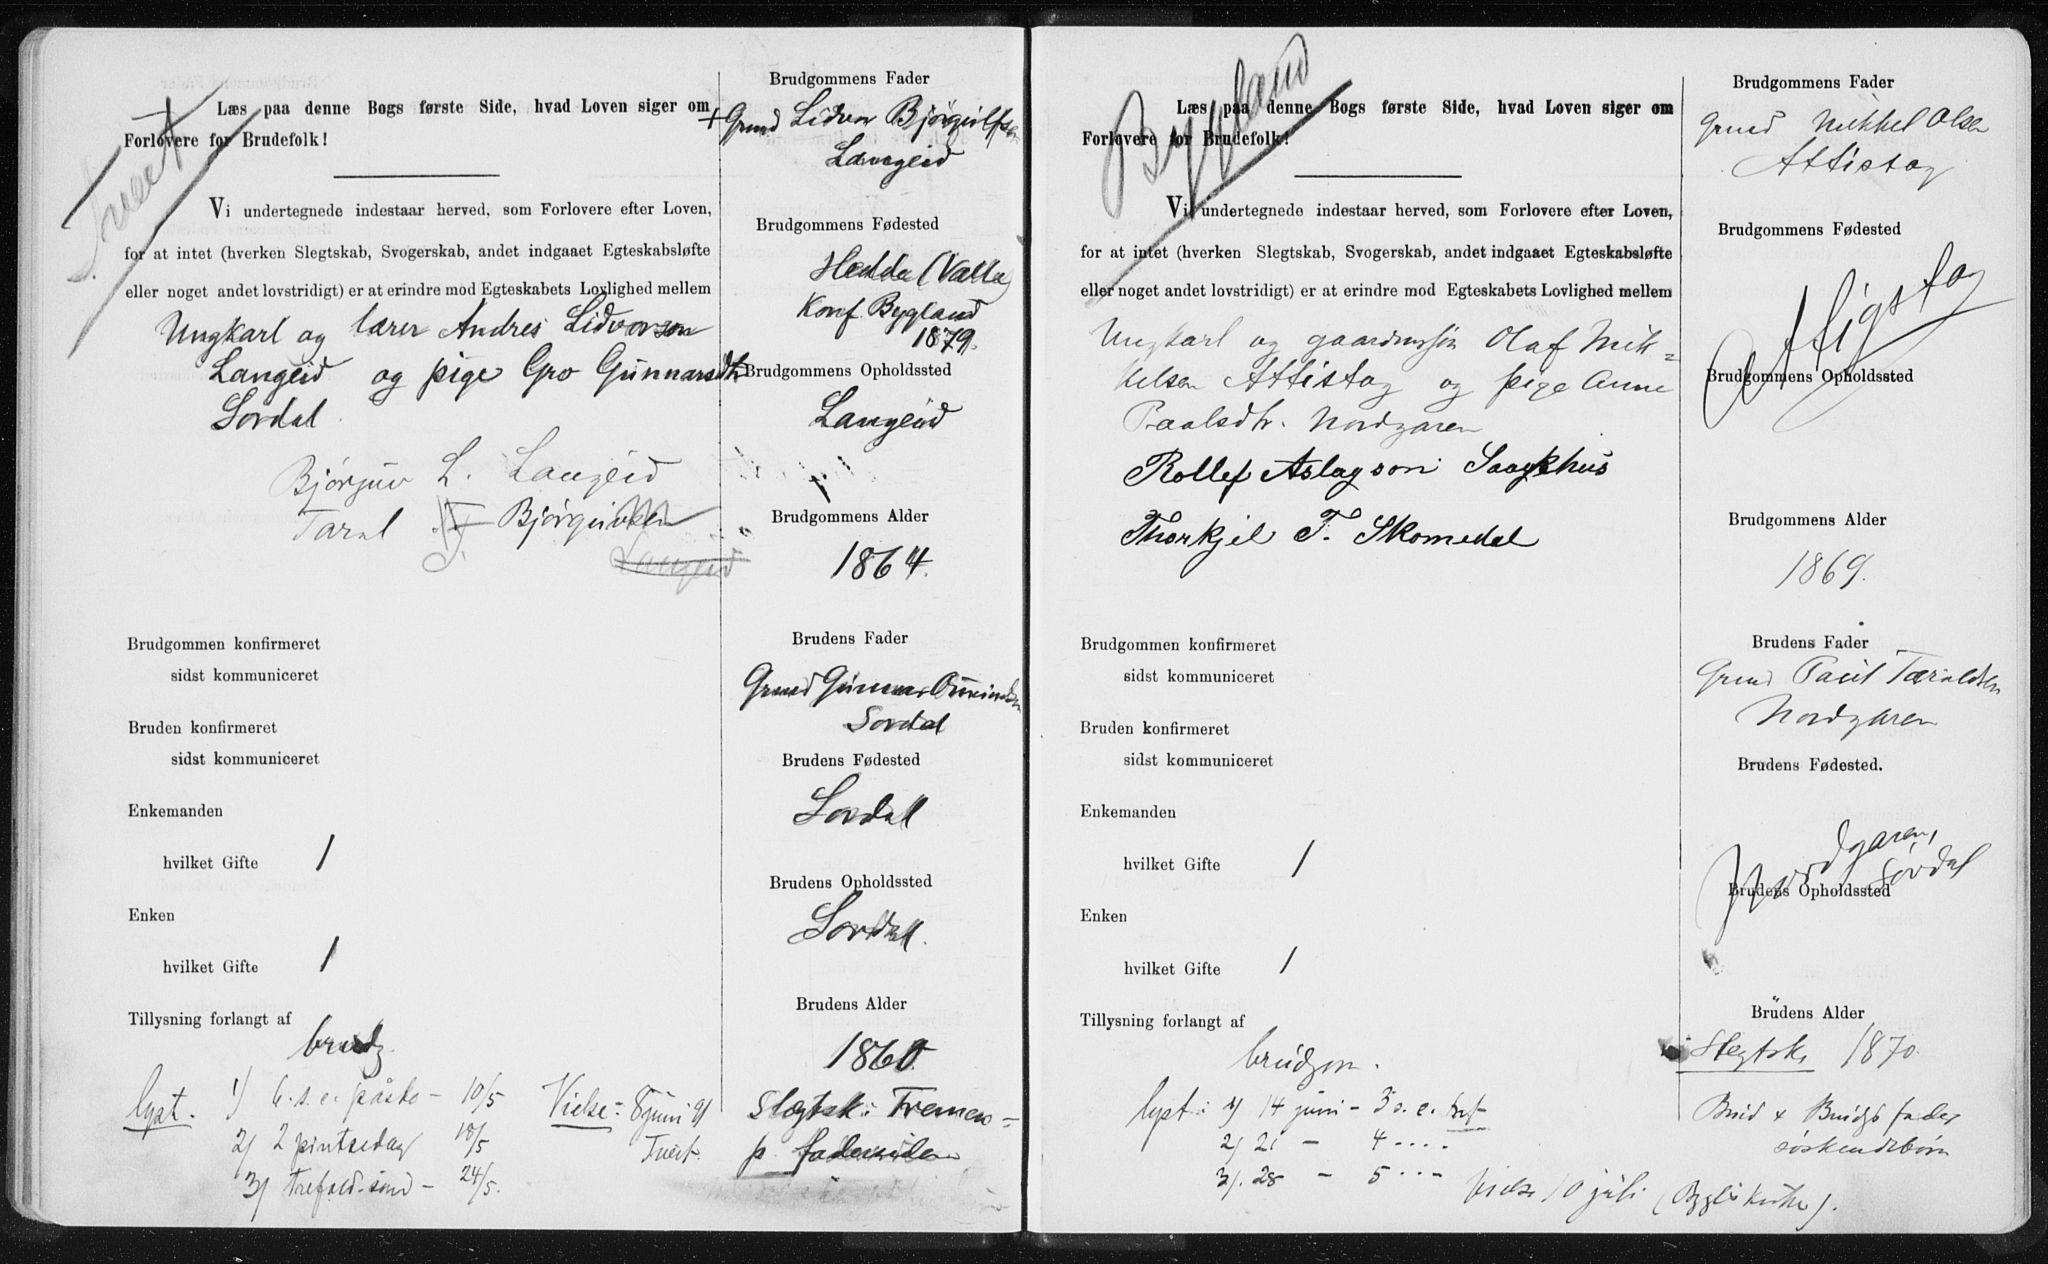 Tveit
Læs paa denne Bogs første Side, hvad Loven siger om
Forlovere for Brudefolk!
Vi undertegnede indestaar herved, som Forlovere efter Loven,
for at intet (hverken Slegtskab, Svogerskab, andet indgaaet Egteskabsløfte
eller noget andet lovstridigt) er at erindre mod Egteskabets Lovlighed mellem
Ungkarl og lærer Andres Lidvorson
Langeid og pige Gro Gunnarsdtr
Sordal
Bjørguv L. Langeid
Taral Bjørguvsen
Langeid
Brudgommen konfirmeret
sidst kommuniceret
Bruden konfirmeret
sidst kommuniceret
Enkemanden
hvilket Gifte 1
Enken
hvilket Gifte 1
Tillysning forlangt af
brudg
lyst. 1) 6. s. e. påske - 10/5 Vielse: 8 juni 91
2) 2 pintsedag 18/5 Tveit.
3) Trefold. sønd - 24/5.
Brudgommens Fader
+ Grmd Lidvor Bjørgulfsen
Langeid
Brudgommens Fødested
Hedde (Valle)
Konf. Bygland
1879.
Brudgommens Opholdssted
Langeid
Brudgommens Alder
1864.
Brudens Fader
Grmd Gunnar
Sordal
Brudens Fødested
Sordal
Brudens Opholdssted
Sordal.
Brudens Alder
1860.
Slægtsk: Tremen=
p. faderside
Bygland
Læs paa denne Bogs første Side, hvad Loven siger om
Forlovere for Brudefolk!
Vi undertegnede indestaar herved, som Forlovere efter Loven,
for at intet (hverken Slegtskab, Svogerskab, andet indgaaet Egteskabsløfte
eller noget andet lovstridigt) er at erindre mod Egteskabets Lovlighed mellem
Ungkarl og gaardmssøn Olaf Mik=
kelsen Attistog og pige Anne
Paalsdtr. Nordgaren
Rollef Aslagson Saaghus
Thorkjel T. Skomedal
Brudgommen konfirmeret
sidst kommuniceret
Bruden konfirmeret
sidst kommuniceret
Enkemanden
hvilket Gifte 1
Enken
hvilket Gifte 1
Tillysning forlangt af
brudgom.
lyst: 1) 14 juni - 3 s. e. tref
2) 21 - 4 ....
3). 28 - 5 ... Vielse 10 juli (Bygl. kirke).
Brudgommens Fader
Grmd Mikkel Olsen
Attistog
Brudgommens Fødested
Attigstog
Brudgommens Opholdssted
Brudgommens Alder
1869.
Brudens Fader
Grmd Paul Taraldsen
Nordgaren
Brudens Fødested.
Nordgaren,
Sørdal
Brudens Opholdssted
Brudens Alder
Slegtsk: 1870.
Brud + Brudgs fader
søskendebørn